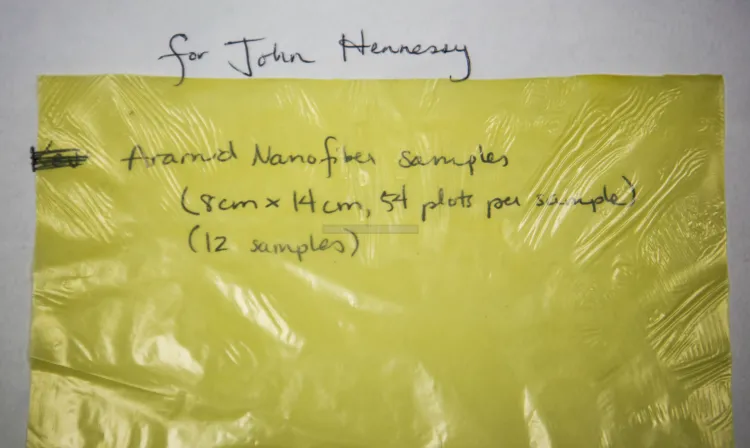 for John Hennessy
Aramid Nanofiber samples
(8cm x 14cm, 54 plots per sample)
(12 samples)